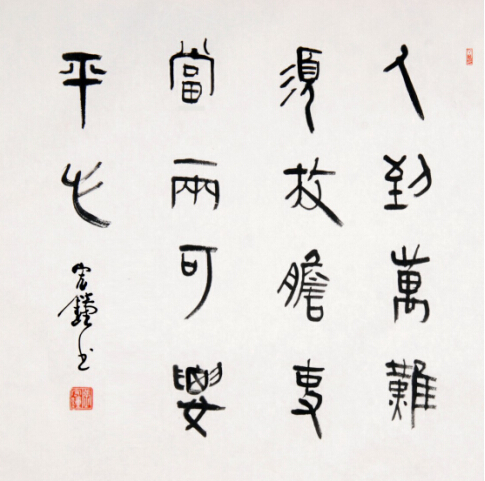 人到萬難
須放膽事
當兩可要
平心
书